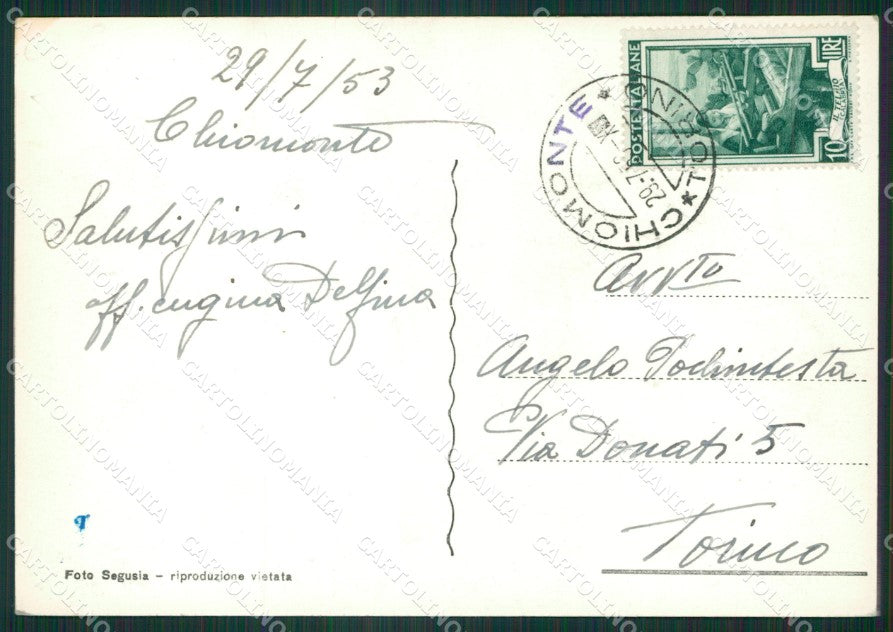 29/7/53
Chiomonte
Salutissimi
aff. cugina Delfina
Foto Segusia – riproduzione vietata
POSTE ITALIANE
LIRE
10
IL TELAIO
CALABRIA
CHIOMONTE * TORINO *
29.7.53
Avv.to
Angelo
Via Donati 5
Torino
CARTOLINOMANIA